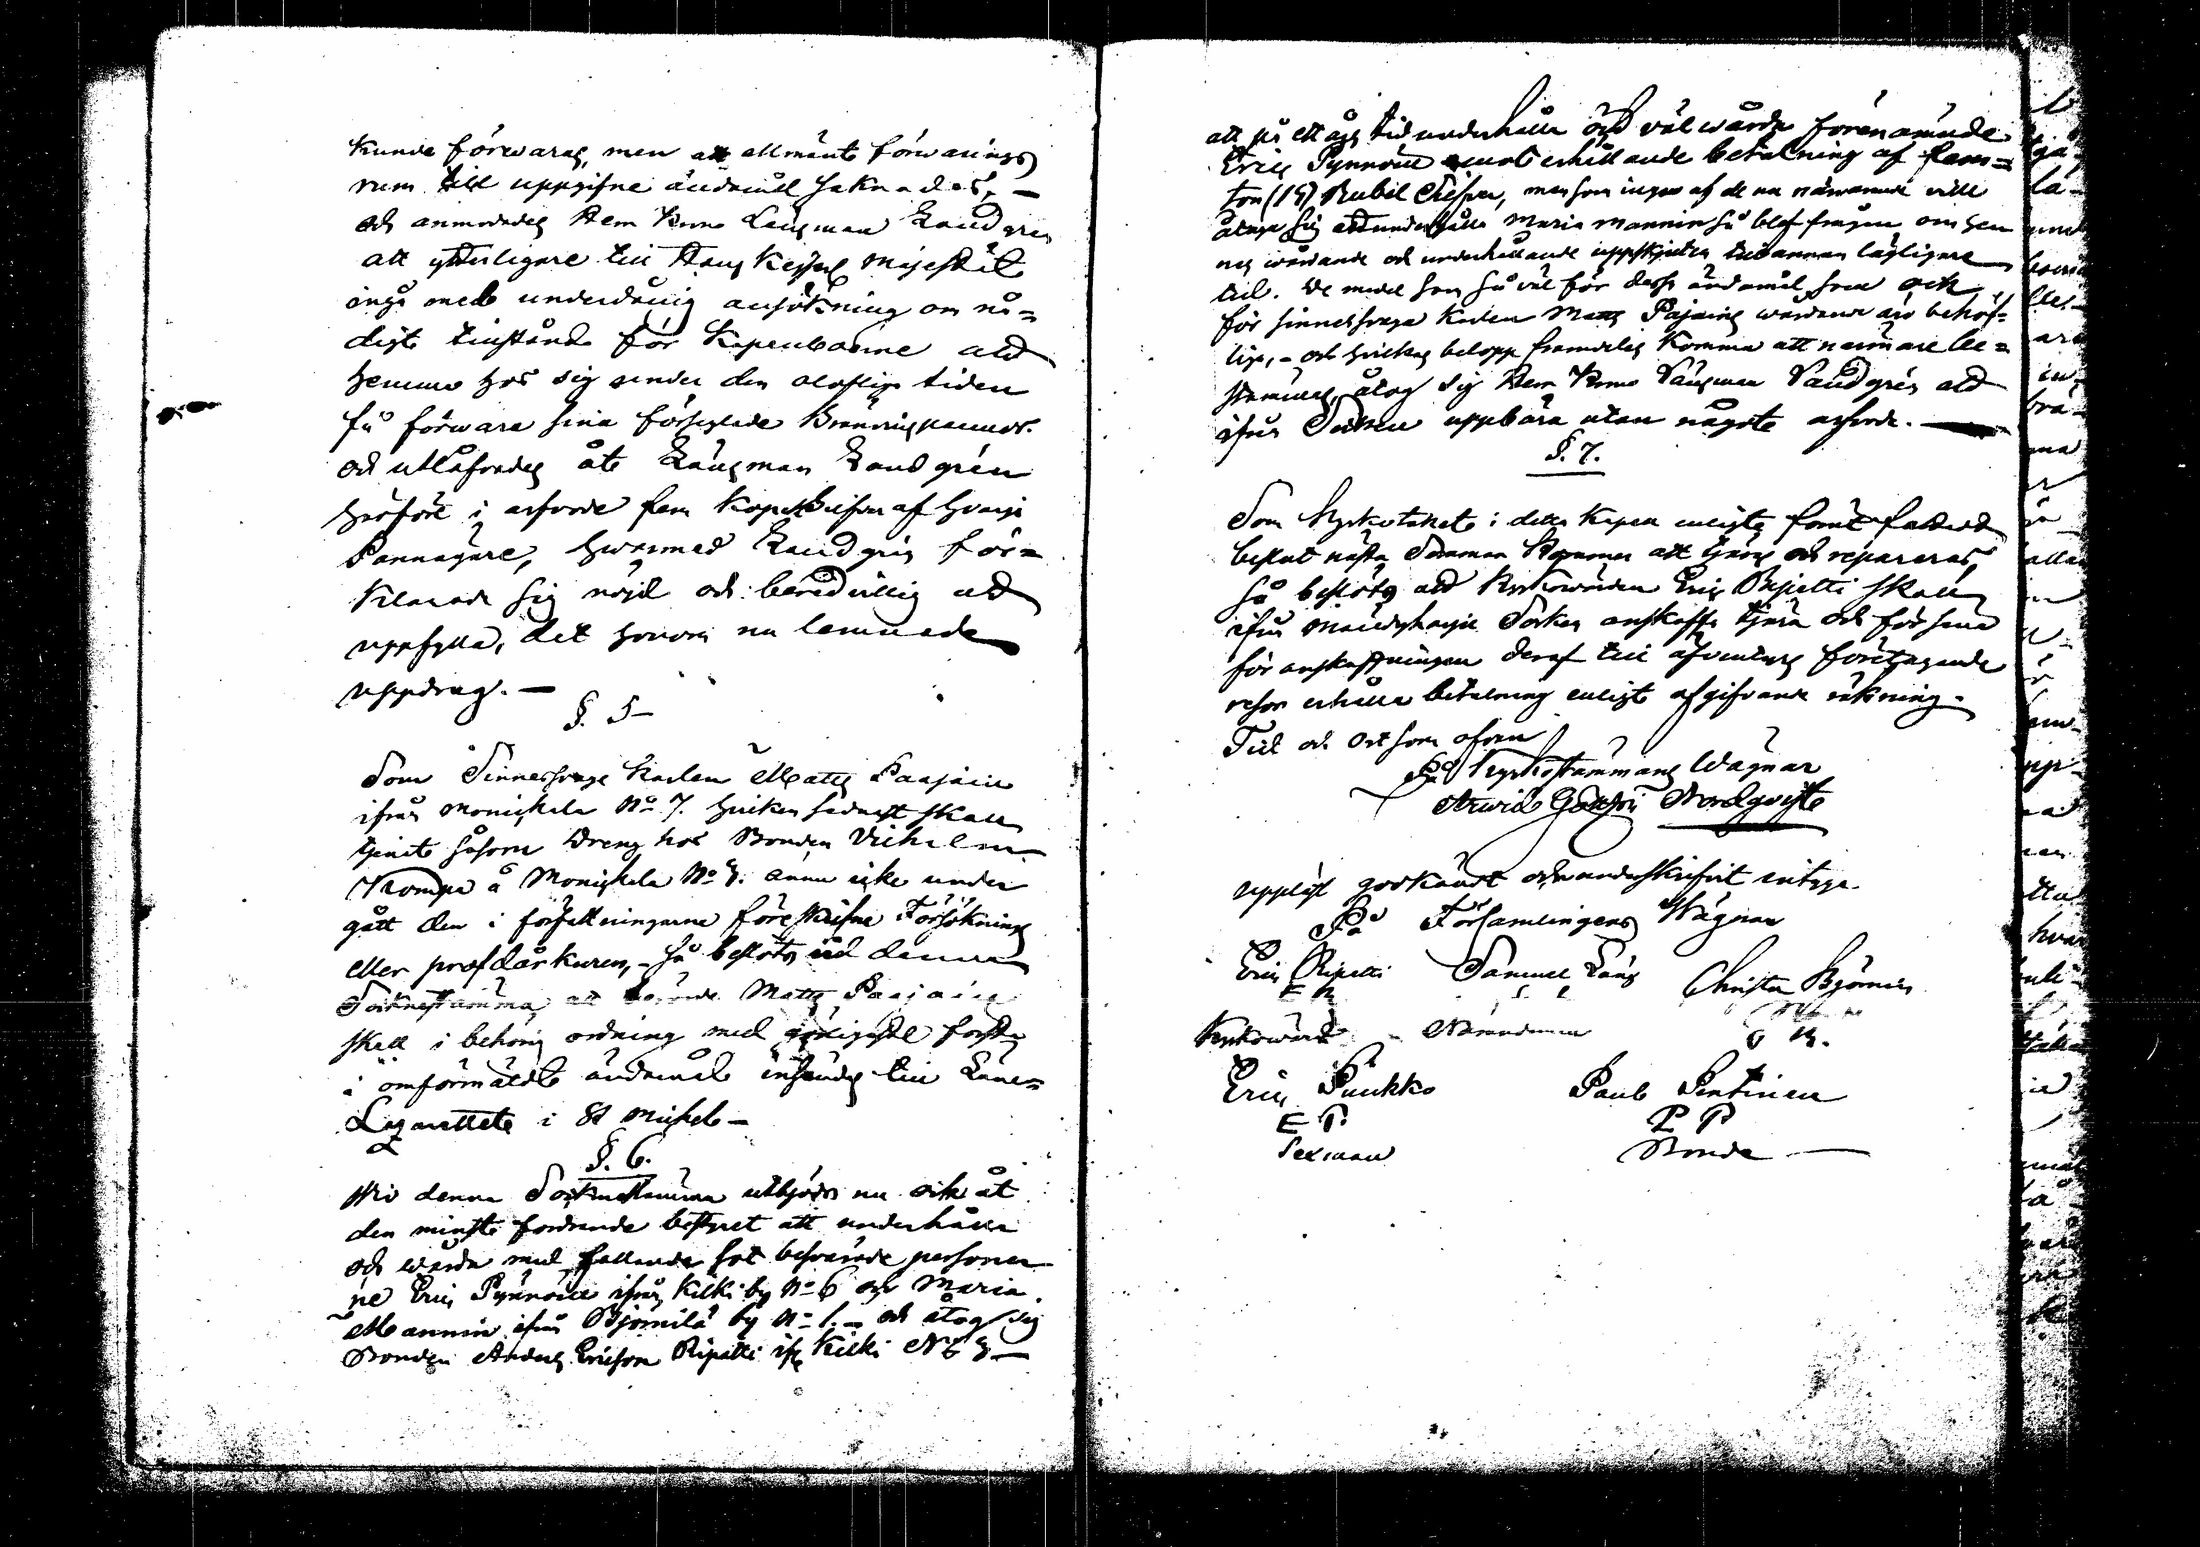 kunde förwaras, men att allmänt förwarings
rum till uppgifne ändamål saknades, —
och anmodades Herr Krono Länsman Sandgren
att ytterligare till Hans Kejserl Majestät
ingå med underdånig ansökning om nå=
digt tillstånd för Kapellboerne att
hemma hos sig under den oloflige tiden
få förwara sina förseglade Brännvinspannor.
och utlåfvades åt Länsman Sandgren
härföre i arfvode fem Kopek Silfver af hvarje
Pannägare, hwarmed Sandgren för=
klarade sig nöjd och beredvillig att
uppfylla, det honom nu lemnade
uppdrag. —
§. 5 —
Som Sinnessvage Karlen Matts Paajain
ifrån Monikkala No 7. hvilken sednast skall
tjent såsom Dreng hos Bonden Vilhelm
Krompa å Monikkala No 3. ännu icke under
gått den i författningarne föreskrifne Försöknings
eller prof dårkuren, - så beslöts vid denna
Sockenstämma, att berörde Matts Paajain
skall i behörig ordning med första
i omförmäldte ändamål insändas till Läne=
Lazarettet i St Michel —
§. 6.
Wid denna Sockenstämma utbjöds nu och åt
den minst fordrande bestyret att underhålla
och wårda med fallande sot besvärade personer
ne Eric Pynnöin ifrån Kilki by No 6 och Maria
Mannin ifrån Björnilä by No 1. — och åtog sig
Bonden Anders Ericsson Ripatti ifr Kilki No 3 —
att på ett års tid underhålla och väl wårda förenämnde
Eric Pynnöin emot erhållande betalning af fem=
ton (15) Rubel Silfver, men som ingen af de nu närvarande ville
åtaga sig att underhålla Maria Mannin så blef frågan om hen
nes wårdande och underhållande uppskjuten till annan lägligare
tid. De medel som så väl för dessa ändamål som och
för sinnessvaga Karlen Matts Pajains wårdande äro behöf=
lige, - och hvilkas belopp framdeles komma att närmare be=
stämmas, åtog sig Herr Krono Länsman Sandgren att
ifrån Socknen uppbära utan något arfvode. —
§. 7.
Som Kyrkotaket i detta Kapell enligt förut fattadt
beslut nästa Sommar kommer att tjäras och repareras,
så beslöts att Kyrkowärden Eric Ripatti skall
ifrån Mäntyharju Socken anskaffa tjära och för sina
för anskaffningen deraf till äfventyrs företagande
resor erhålla betalning enligt afgifvande räkning.
Tid och ort som ofvan
På Kyrkostämmans Wägnar
Arvid Nordqvist
uppläst godkändt och underskrifvit intyga
På Församlingens Wägnar
Eric Ripatti Samuel Läns Christer Björnin
E R S L
Kyrkowärd Nämndeman
Eric Puukko Paul Pentinen
E P. P P
Sexman Bonde —